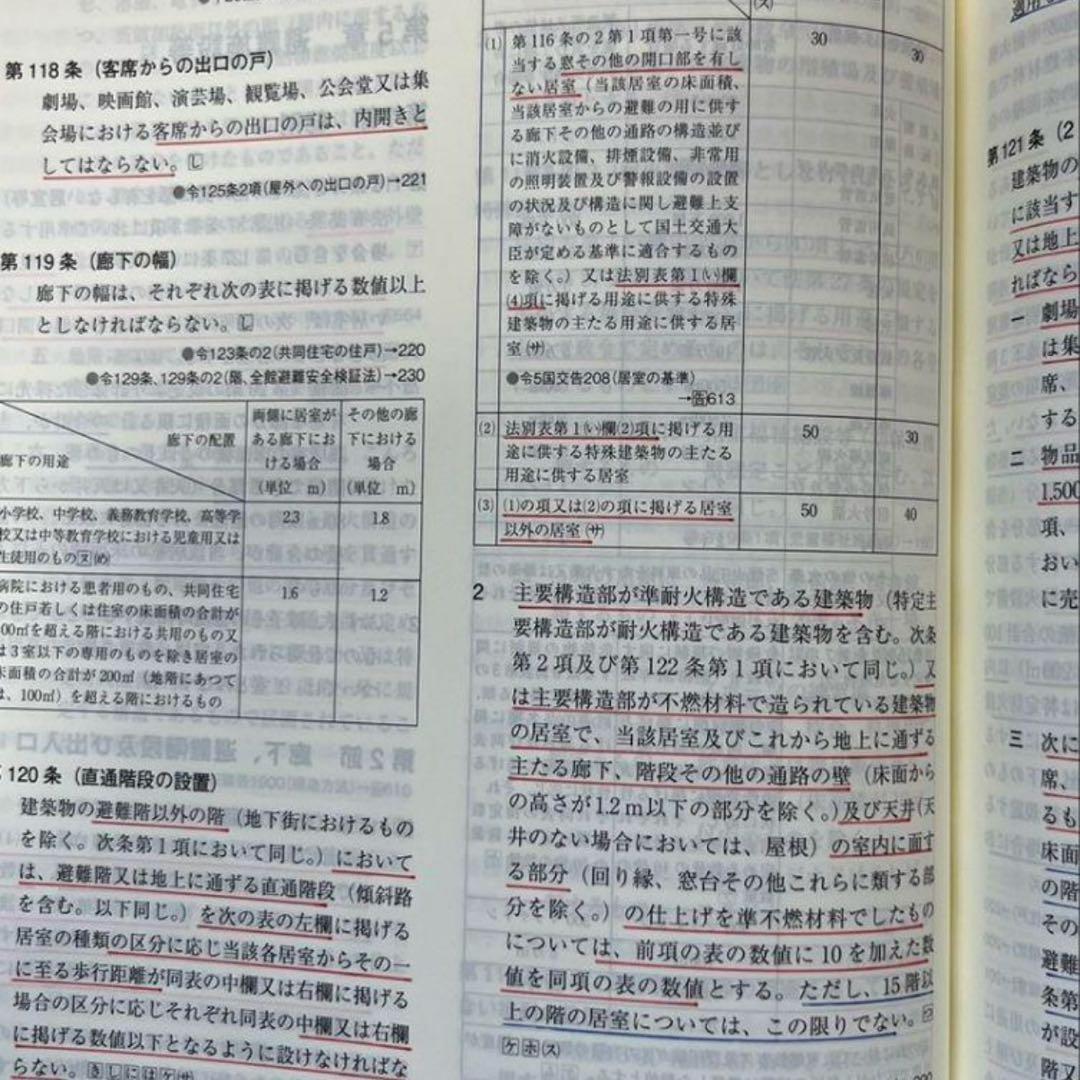 第118条(客席からの出口の戸)
劇場、映画館、演芸場、観覧場、公会堂又は集
会場における客席からの出口の戸は、内開きと
してはならない。
●令125条2項(屋外への出口の戸)→221
第119条(廊下の幅)
廊下の幅は、それぞれ次の表に掲げる数値以上
としなければならない。
●令123条の2(共同住宅の住戸)→220
●令129条、129条の2(階、全館避難安全検証法)→230
廊下の配置
廊下の用途
両側に居室が
ある廊下にお
ける場合
(単位 m)
その他の廊
下における
場合
(単位 m)
小学校、中学校、義務教育学校、高等学
校又は中等教育学校における児童用又は
生徒用のもの
2.3
1.8
病院における患者用のもの、共同住宅
の住戸若しくは住室の床面積の合計が
00㎡を超える階における共用のもの又
は3室以下の専用のものを除き居室の
床面積の合計が200㎡(地階にあつて
は、100㎡)を超える階におけるもの
1.6
1.2
120条(直通階段の設置)
建築物の避難階以外の階(地下街におけるもの
を除く。次条第1項において同じ。)において
は、避難階又は地上に通ずる直通階段(傾斜路
を含む。以下同じ。)を次の表の左欄に掲げる
居室の種類の区分に応じ当該各居室からその一
に至る歩行距離が同表の中欄又は右欄に掲げる
場合の区分に応じそれぞれ同表の中欄又は右欄
に掲げる数値以下となるように設けなければな
らない。
(ス)
(1)
第116条の2第1項第一号に該
当する窓その他の開口部を有し
ない居室(当該居室の床面積、
当該居室からの避難の用に供す
る廊下その他の通路の構造並び
に消火設備、排煙設備、非常用
の照明装置及び警報設備の設置
の状況及び構造に関し避難上支
障がないものとして国土交通大
臣が定める基準に適合するもの
を除く。)又は法別表第1(い)欄
(4)項に掲げる用途に供する特殊
建築物の主たる用途に供する居
室(サ)
●令5国交告208(居室の基準)
→告613
30
30
(2)
法別表第1(い)欄(2)項に掲げる用
途に供する特殊建築物の主たる
用途に供する居室
50
30
(3)
(1)の項又は(2)の項に掲げる居室
以外の居室(サ)
50
40
2 主要構造部が準耐火構造である建築物(特定主
要構造部が耐火構造である建築物を含む。次条
第2項及び第122条第1項において同じ。)又
は主要構造部が不燃材料で造られている建築物
の居室で、当該居室及びこれから地上に通ずる
主たる廊下、階段その他の通路の壁(床面から
の高さが1.2m以下の部分を除く。)及び天井(天
井のない場合においては、屋根)の室内に面す
る部分(回り縁、窓台その他これらに類する部
分を除く。)の仕上げを準不燃材料でしたもの
については、前項の表の数値に10を加えた数
値を同項の表の数値とする。ただし、15階以
上の階の居室については、この限りでない。
ケホ(ス)
第121条(2
建築物の
に該当す
又は地上
ればなら
一 劇場
は集
席、
する
二 物品
1,500
項、
おい
に売
三 次に
席、
るも
床面
の階
その
避難
条第
が設
階又